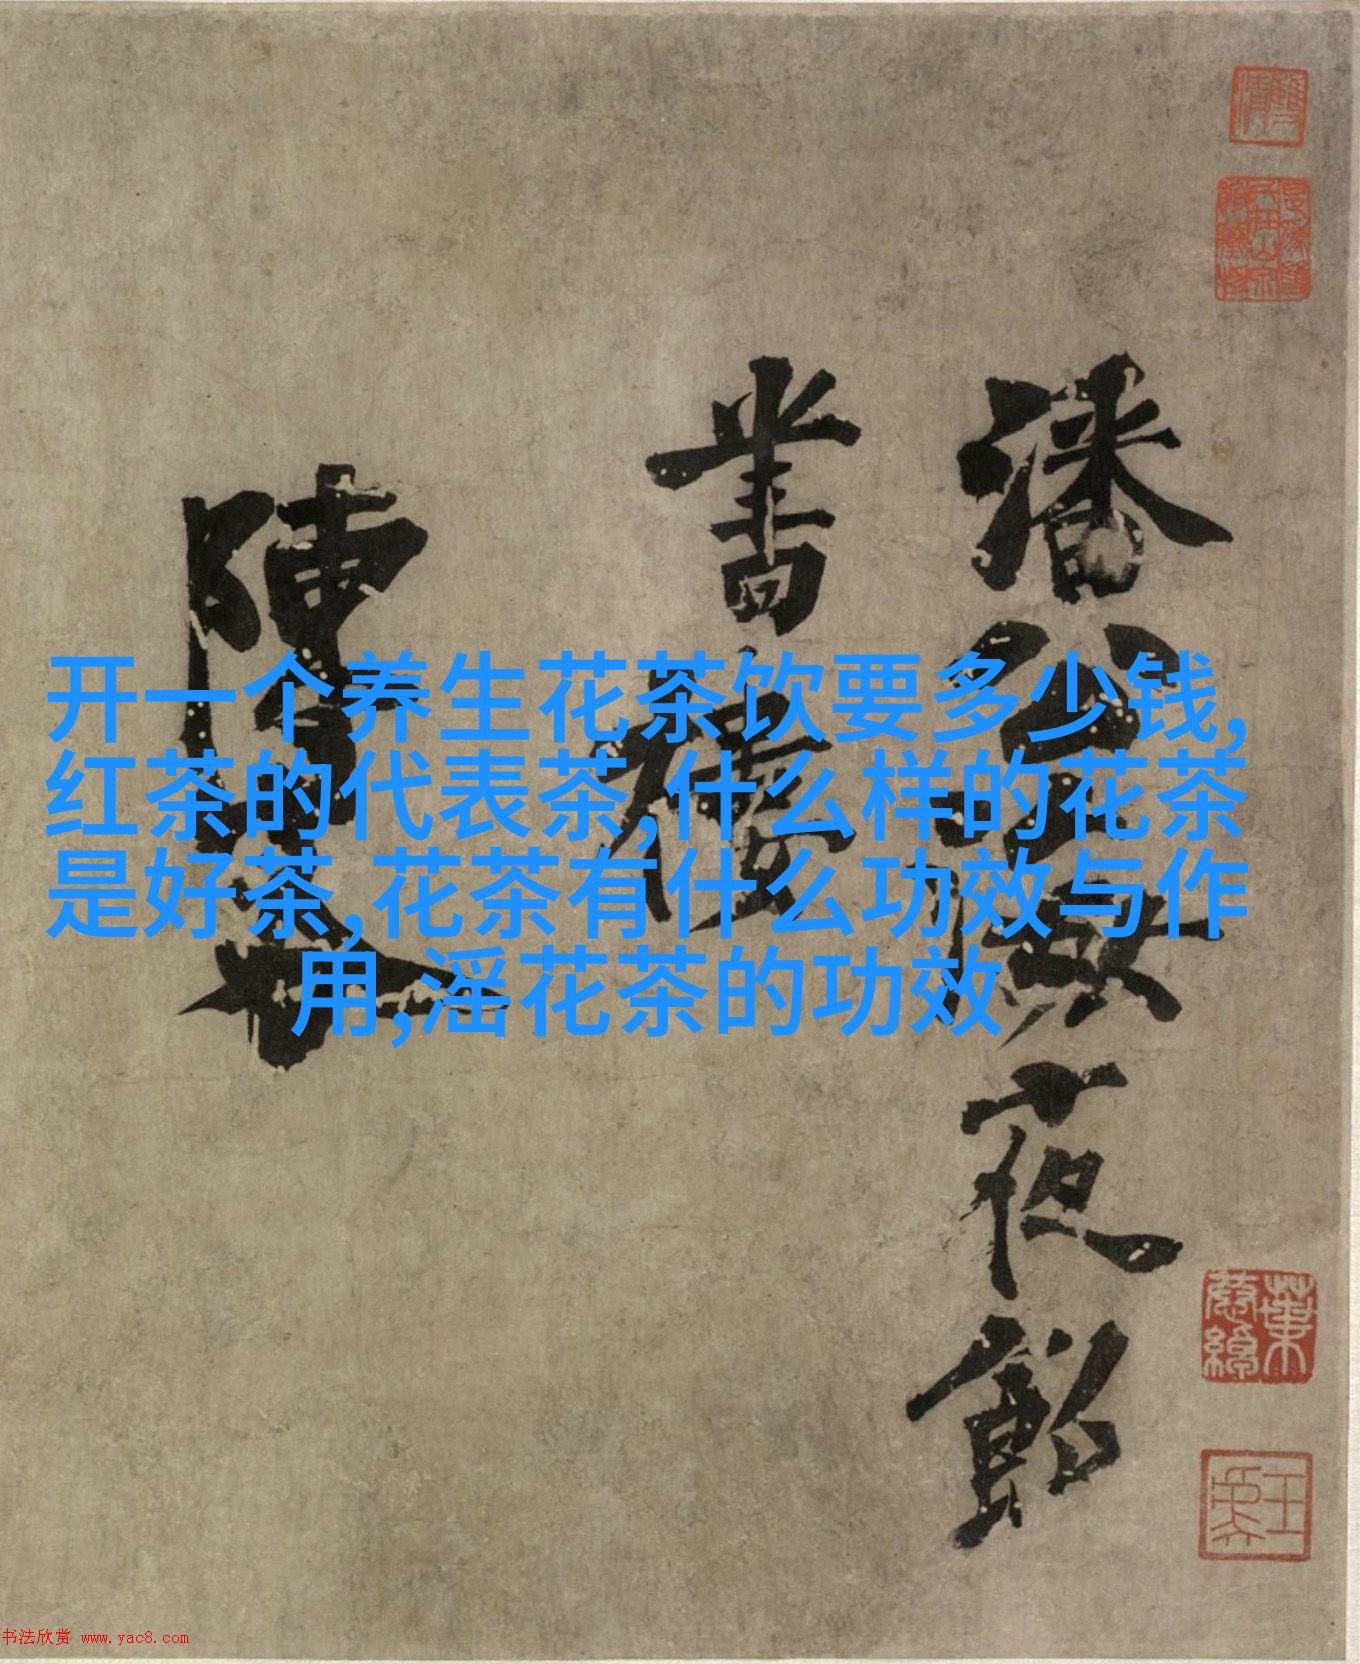 潘公海夜飲
書樓
陳
开一个养生花茶饮要多少钱,
红茶的代表茶,什么样的花茶
是好茶,花茶有什么功效与作
用,滛花茶的功效
书法欣赏 www.yac8.com